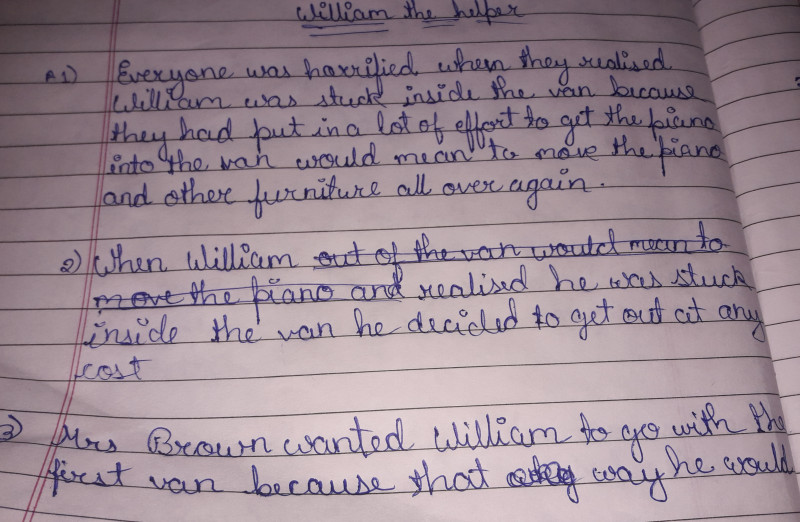 William the helper
A1) Everyone was horrified when they realised
William was stuck inside the van because
they had put in a lot of effort to get the piano
into the van would mean to move the piano
and other furniture all over again.
2) When William out of the van would mean to
move the piano and realised he was stuck
inside the van he decided to get out at any
cost
3) Mrs Brown wanted William to go with the
first van because that way he would